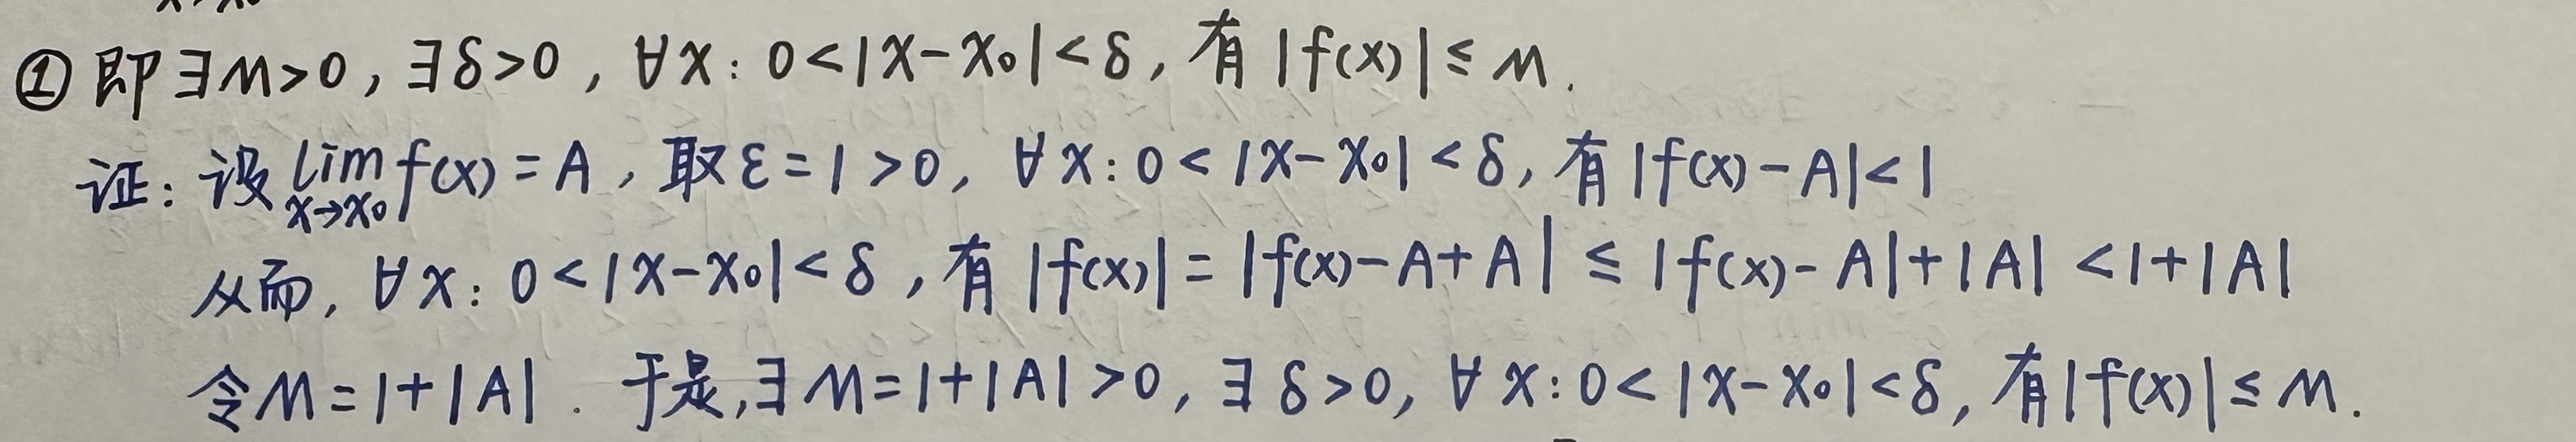 ① 即 ∃M>0, ∃δ>0, ∀x: 0<|x-x₀|<δ, 有 |f(x)|≤M.
证: 设 lim_{x→x₀} f(x)=A, 取 ε=1>0, ∀x: 0<|x-x₀|<δ, 有 |f(x)-A|<1
从而, ∀x: 0<|x-x₀|<δ, 有 |f(x)|=|f(x)-A+A|≤|f(x)-A|+|A|<1+|A|
令 M=1+|A|. 于是, ∃M=1+|A|>0, ∃δ>0, ∀x: 0<|x-x₀|<δ, 有|f(x)|≤M.